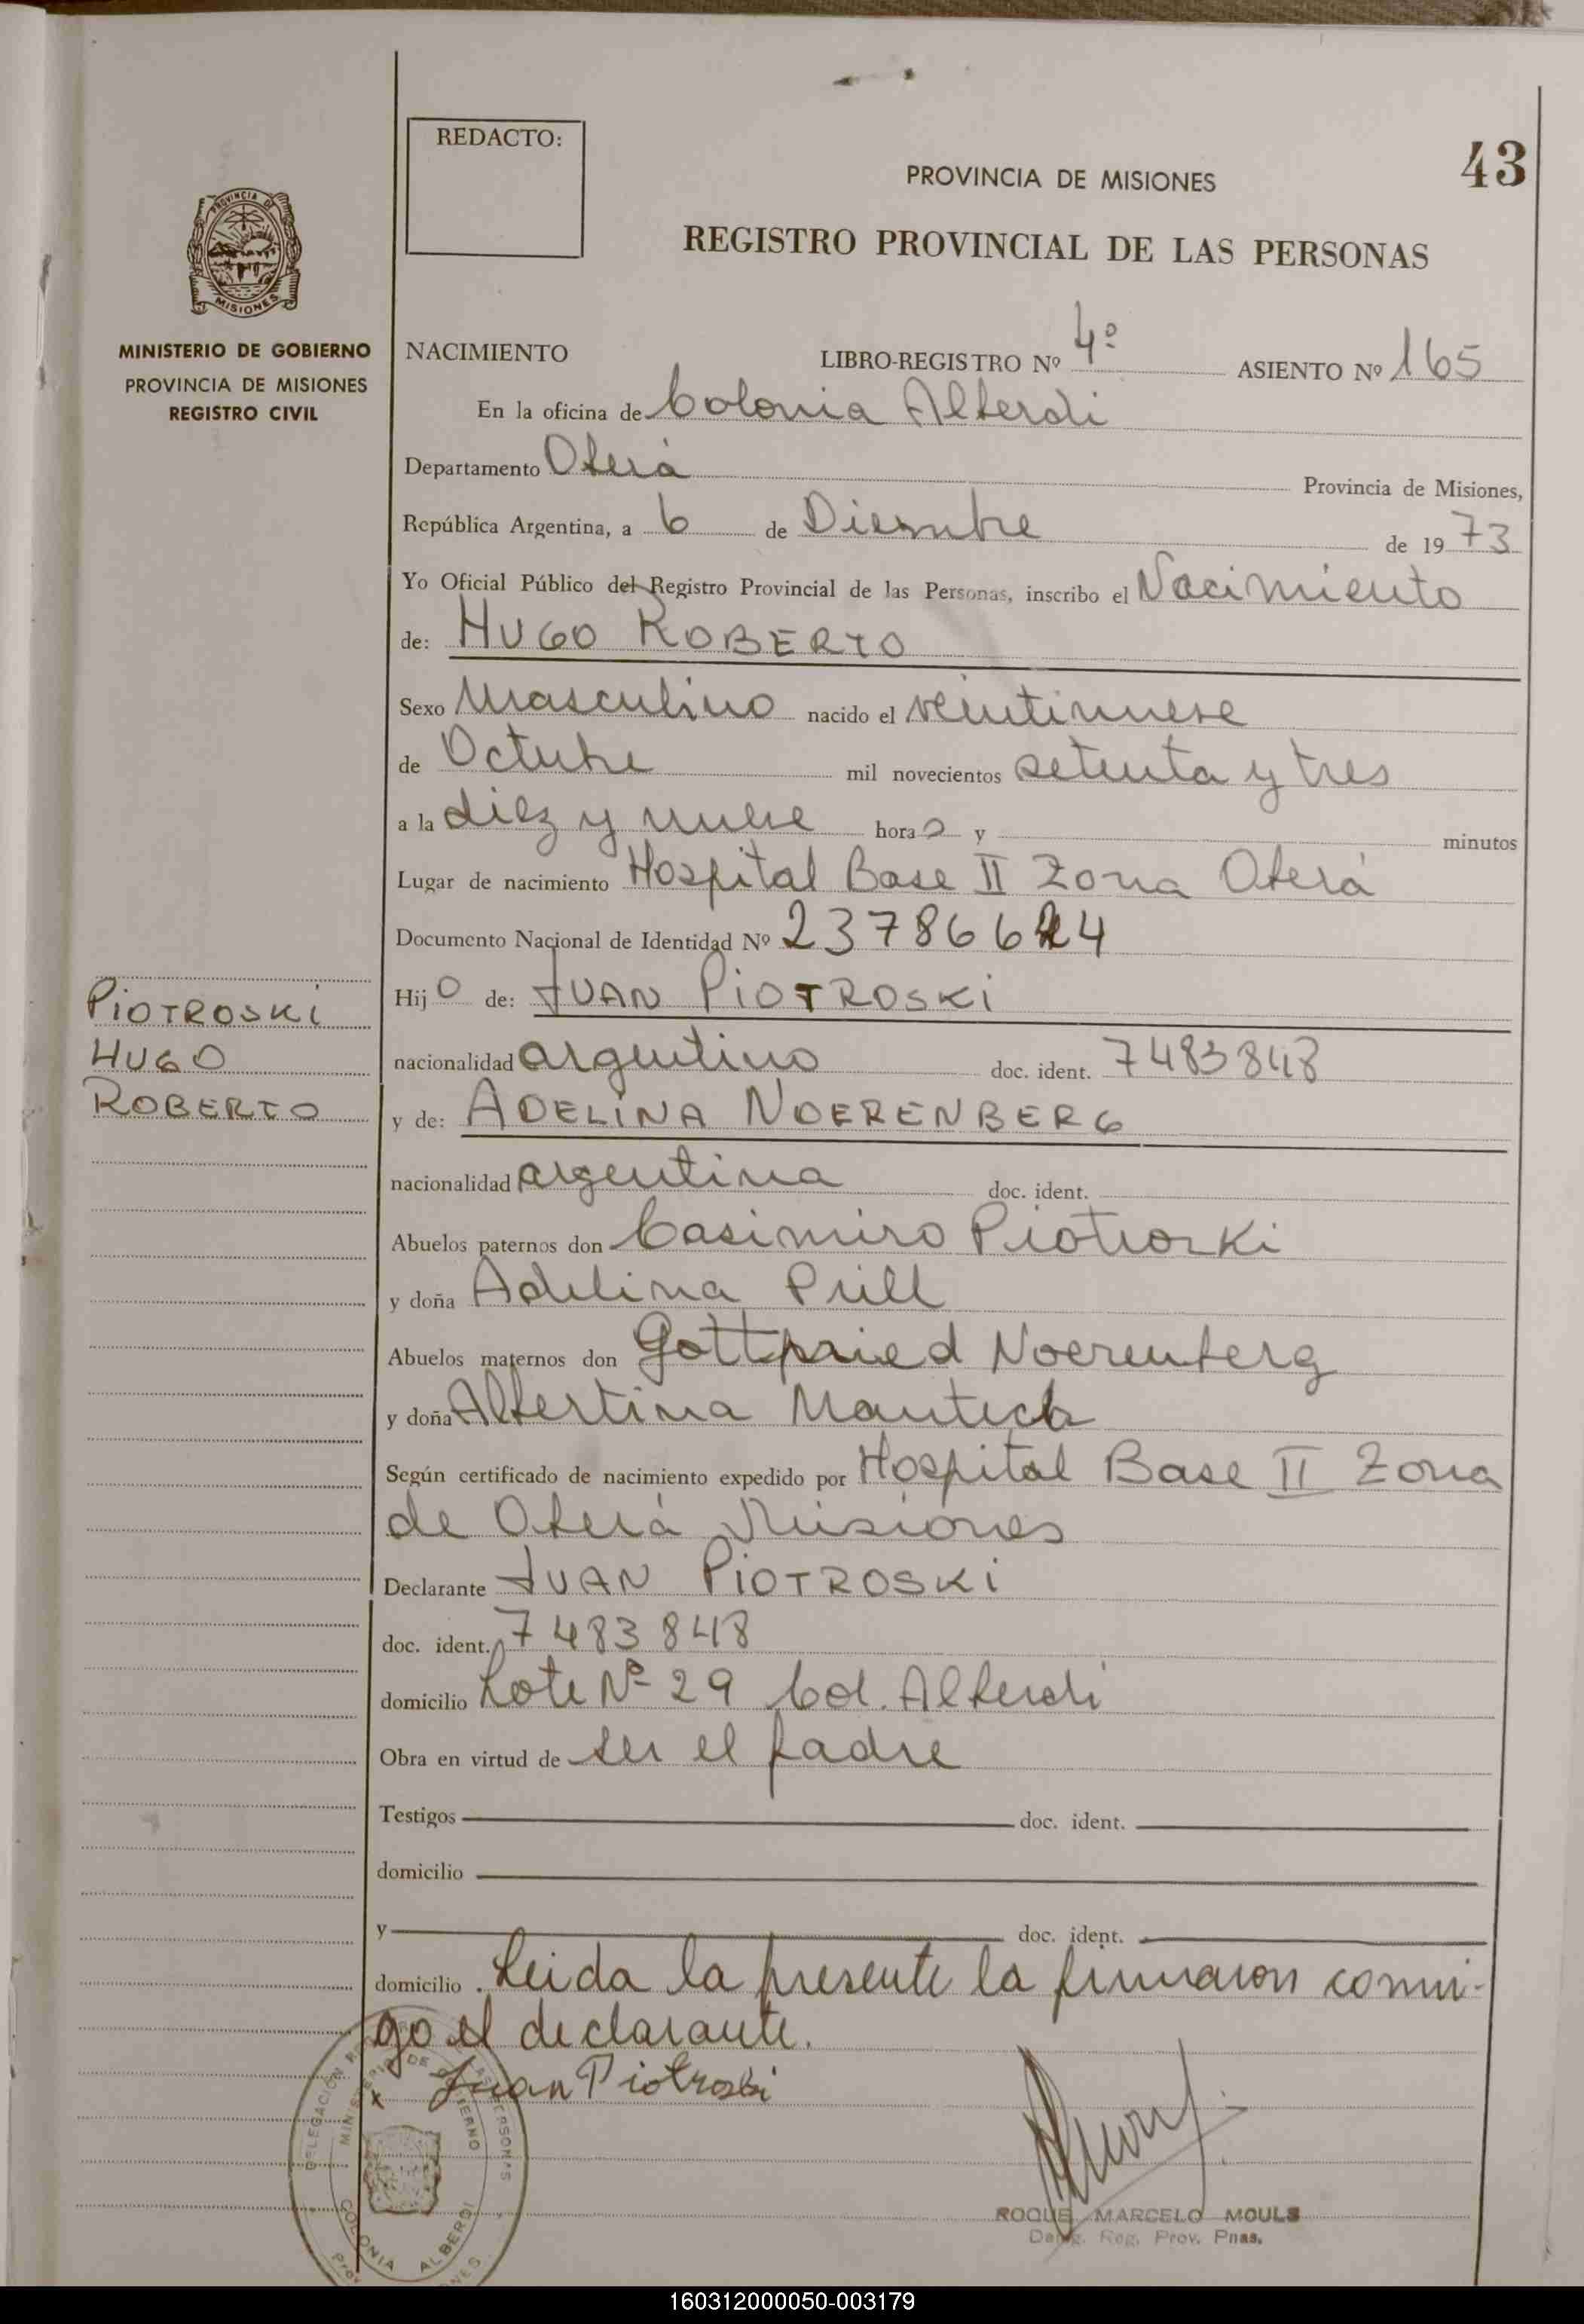 REDACTO:
43
PROVINCIA DE MISIONES
REGISTRO PROVINCIAL DE LAS PERSONAS
PROVINCIA DE
MISIONES
MINISTERIO DE GOBIERNO
PROVINCIA DE MISIONES
REGISTRO CIVIL
NACIMIENTO LIBRO-REGISTRO Nº 4º ASIENTO Nº 165
En la oficina de Colonia Alberdi
Departamento Oberá Provincia de Misiones,
República Argentina, a 6 de Diembre de 1973
Yo Oficial Público del Registro Provincial de las Personas, inscribo el Nacimiento
de: HUGO ROBERTO
Sexo Masculino nacido el veintinueve
de Octubre mil novecientos setenta y tres
a la diez y nueve horas y minutos
Lugar de nacimiento Hospital Base II Zona Oberá
Documento Nacional de Identidad Nº 23786624
Hijo de: JUAN PIOTROSKI
nacionalidad argentino doc. ident. 7483848
y de: ADELINA NOERENBERG
nacionalidad argentina doc. ident.
Abuelos paternos don Casimiro Piotroski
y doña Adelina Prill
Abuelos maternos don Gottfried Noerenberg
y doña Albertina
Según certificado de nacimiento expedido por Hospital Base II Zona
de Oberá Misiones
Declarante JUAN PIOTROSKI
doc. ident. 7483848
domicilio Lote Nº 29 Col. Alberdi
Obra en virtud de ser el padre
Testigos doc. ident.
domicilio
y doc. ident.
domicilio . Leida la presente la firmaron conmi-
go el declarante.
x Juan Piotroski
PIOTROSKI
HUGO
ROBERTO
MINISTERIO DE GOBIERNO
COLONIA ALBERDI
ROQUE MARCELO MOULS
Deleg. Reg. Prov. Pnas.
160312000050-003179